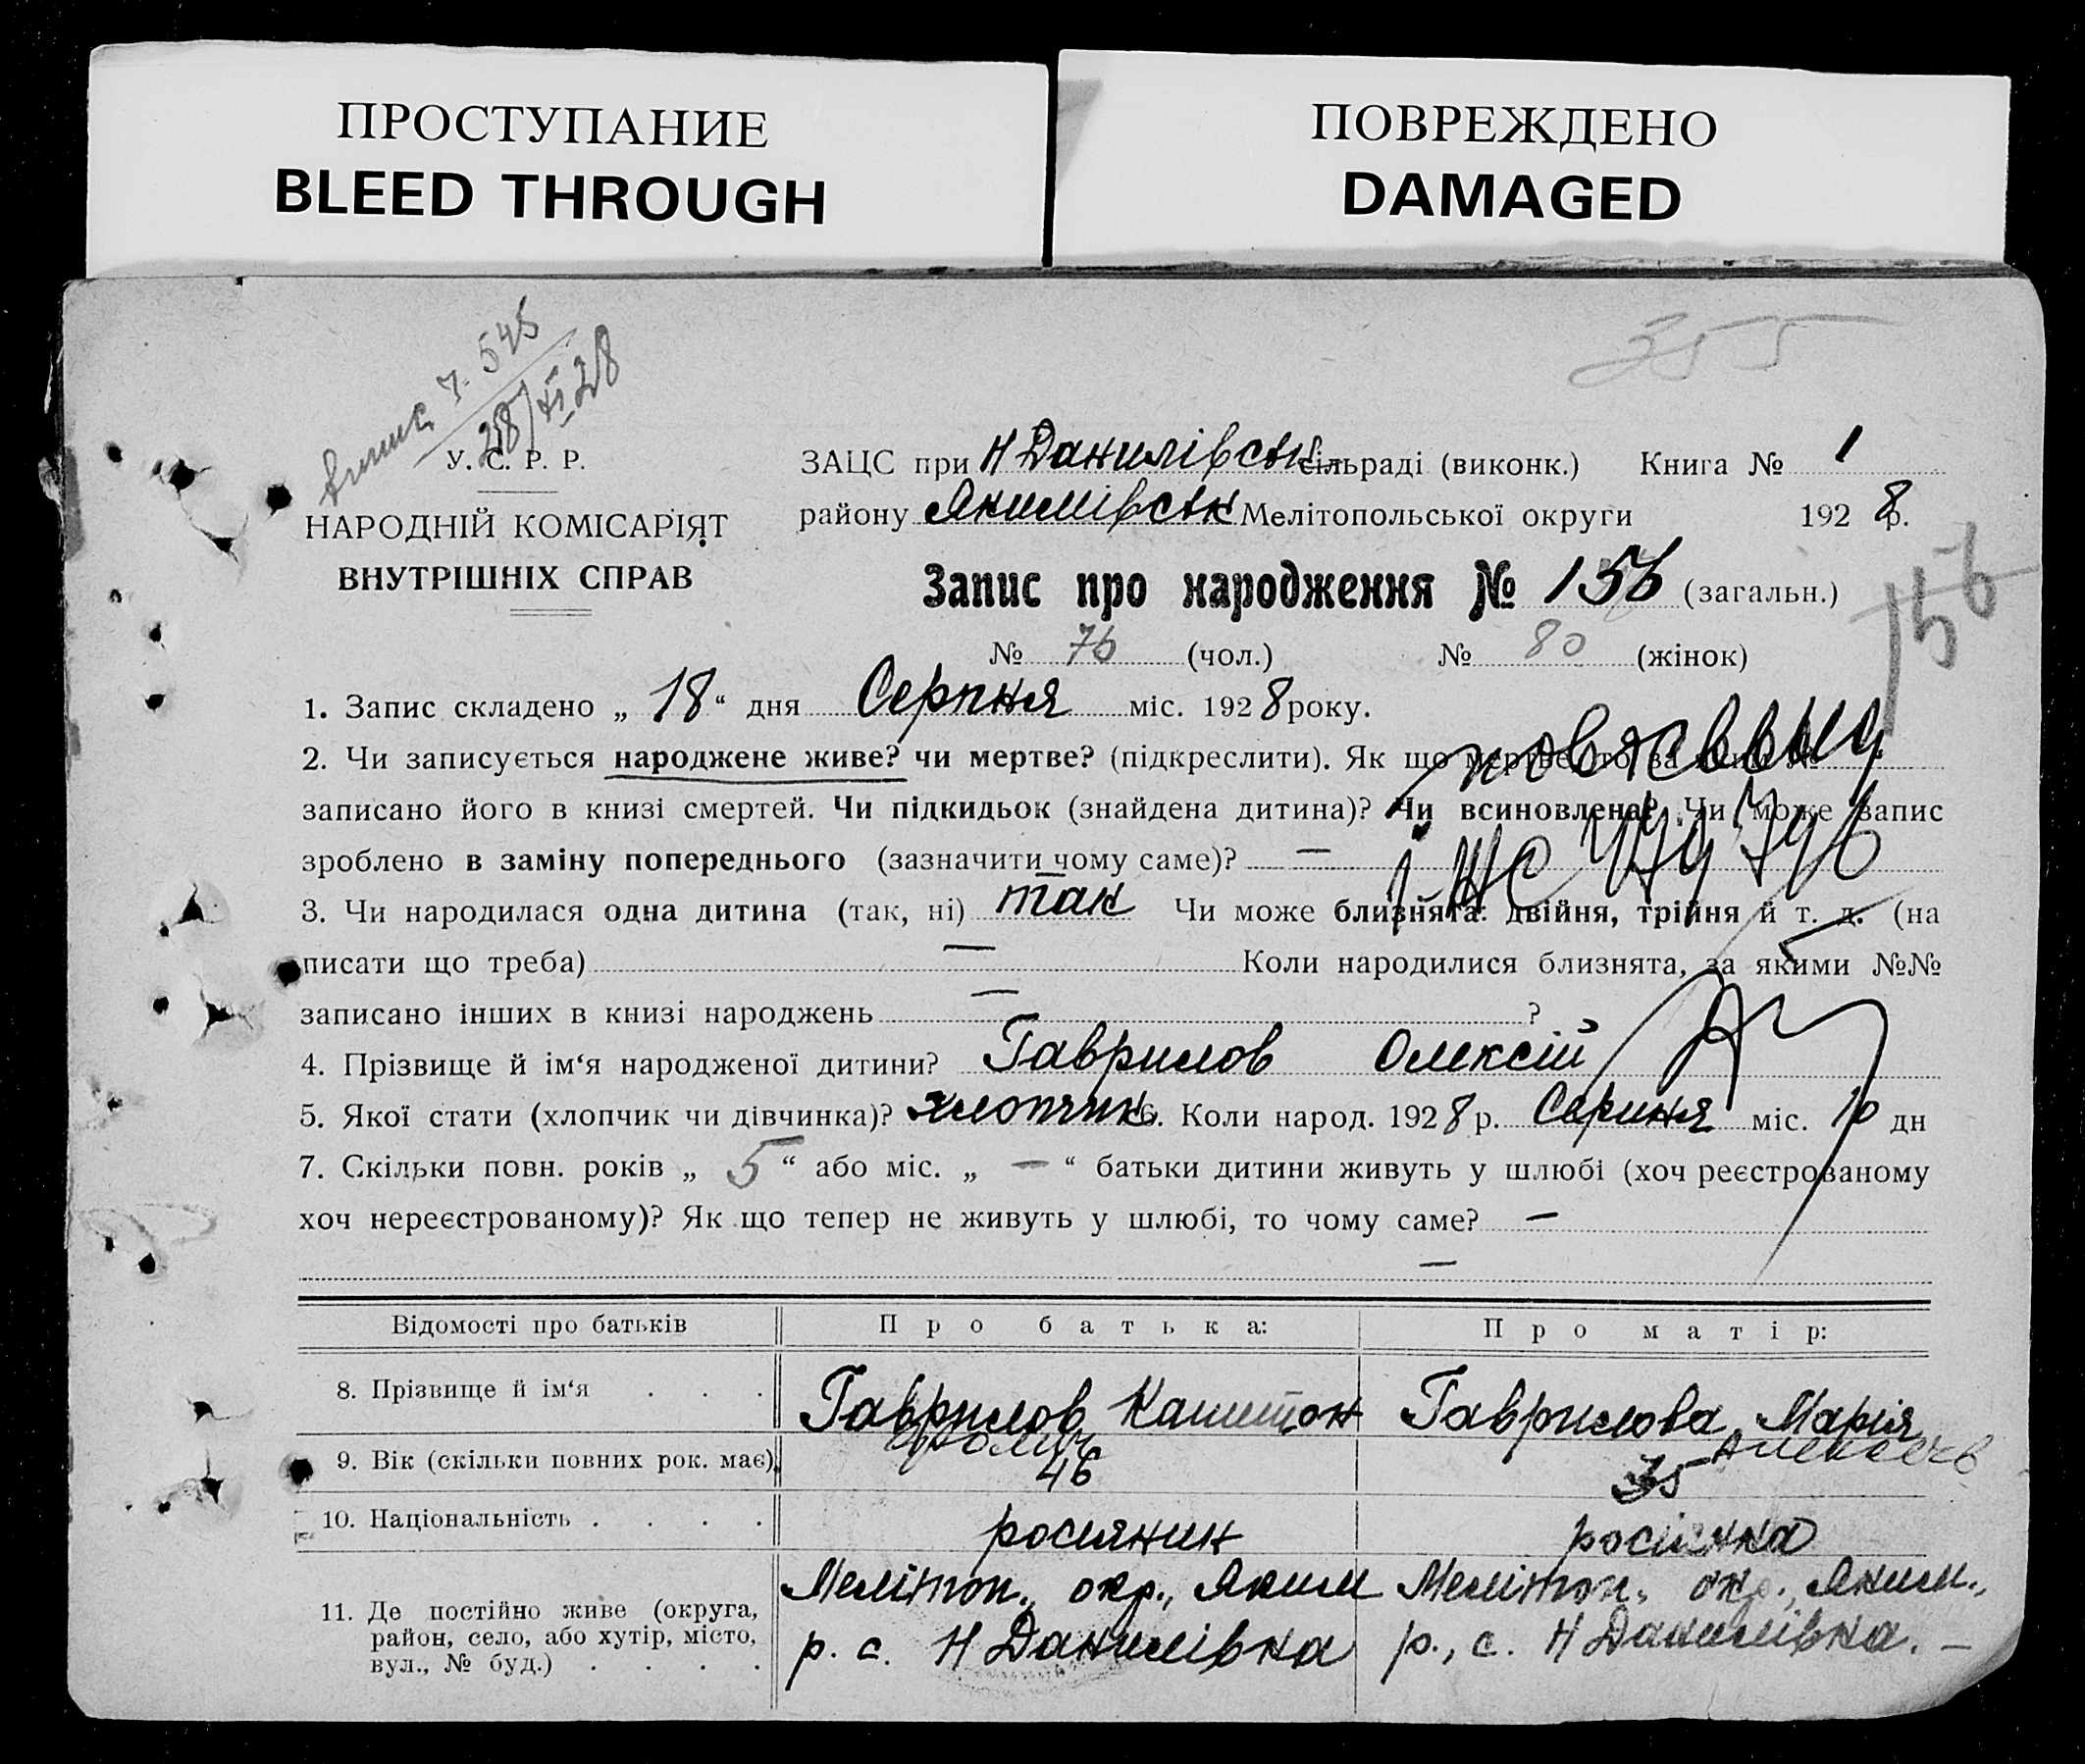 ПРОСТУПАНИЕ
BLEED THROUGH
ПОВРЕЖДЕНО
DAMAGED
355
Випис ч. 545
28/XI 28
У. С. Р. Р.
НАРОДНІЙ КОМІСАРІЯТ
ВНУТРІШНІХ СПРАВ
ЗАЦС при Н Данилівськ сільраді (виконк.) Книга № 1
району Якимівськ Мелітопольської округи 1928 р.
Запис про народження № 156 (загальн.)
156
№ 76 (чол.) № 80 (жінок)
1. Запис складено „ 18 “ дня Серпня міс. 1928 року.
2. Чи записується народжене живе? чи мертве? (підкреслити). Як що мертве, то за яким №
записано його в книзі смертей. Чи підкидьок (знайдена дитина)? Чи всиновлена? Чи може запис
зроблено в заміну попереднього (зазначити чому саме)? —
3. Чи народилася одна дитина (так, ні) так Чи може близнята: двійня, трійня й т. д. (на
писати що треба) — Коли народилися близнята, за якими №№
записано інших в книзі народжень — ?
4. Прізвище й ім‘я народженої дитини? Гаврилов Олексій
5. Якої стати (хлопчик чи дівчинка)? хлопчик 6. Коли народ. 1928 р. Серпня міс. 10 дн
7. Скільки повн. років „ 5 “ або міс. „ — “ батьки дитини живуть у шлюбі (хоч реєстрованому
хоч нереєстрованому)? Як що тепер не живуть у шлюбі, то чому саме? —
—
Відомості про батьків Про батька: Про матір:
8. Прізвище й ім‘я . . . Гаврилов Капитон Гаврилова Марія
9. Вік (скільки повних рок. має) 46 35
10. Національність . . . . росіянин росіянка
11. Де постійно живе (округа, район, село, або хутір, місто, вул., № буд.) . . . .
Мелітоп., окр., Яким
р. с. Н Данилівка
Мелітоп. окр., Яким.,
р., с. Н Данилівка. —